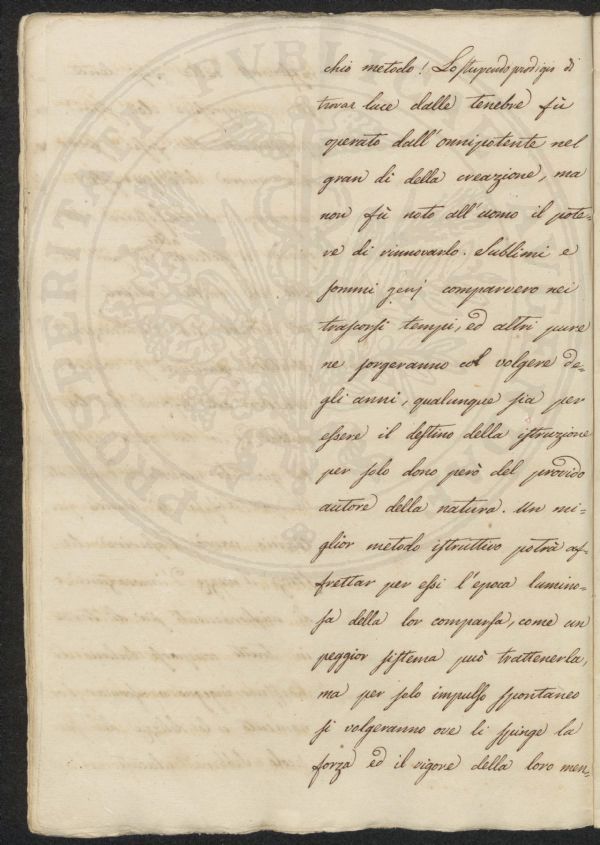 chio metodo! Lo stupendo prodigio di
trovar luce dalle tenebre fù
operato dall'onnipotente nel
gran di della creazione, ma
non fù noto all'uomo il pote=
re di rinnovarlo. Sublimi e
sommi genj comparvero nei
trascorsi tempi, ed altri pure
ne sorgeranno col volgere de=
gli anni, qualunque sia per
essere il destino della istruzione
per solo dono però del provido
autore della natura. Un mi=
glior metodo istruttivo potrà af=
frettar per essi l'epoca lumino=
sa della lor comparsa, come un
peggior sistema può trattenerla,
ma per solo impulso spontaneo
si volgeranno ove li spinge la
forza ed il vigore della loro men=
PROSPERITATI PVBLICAE AVGENDAE